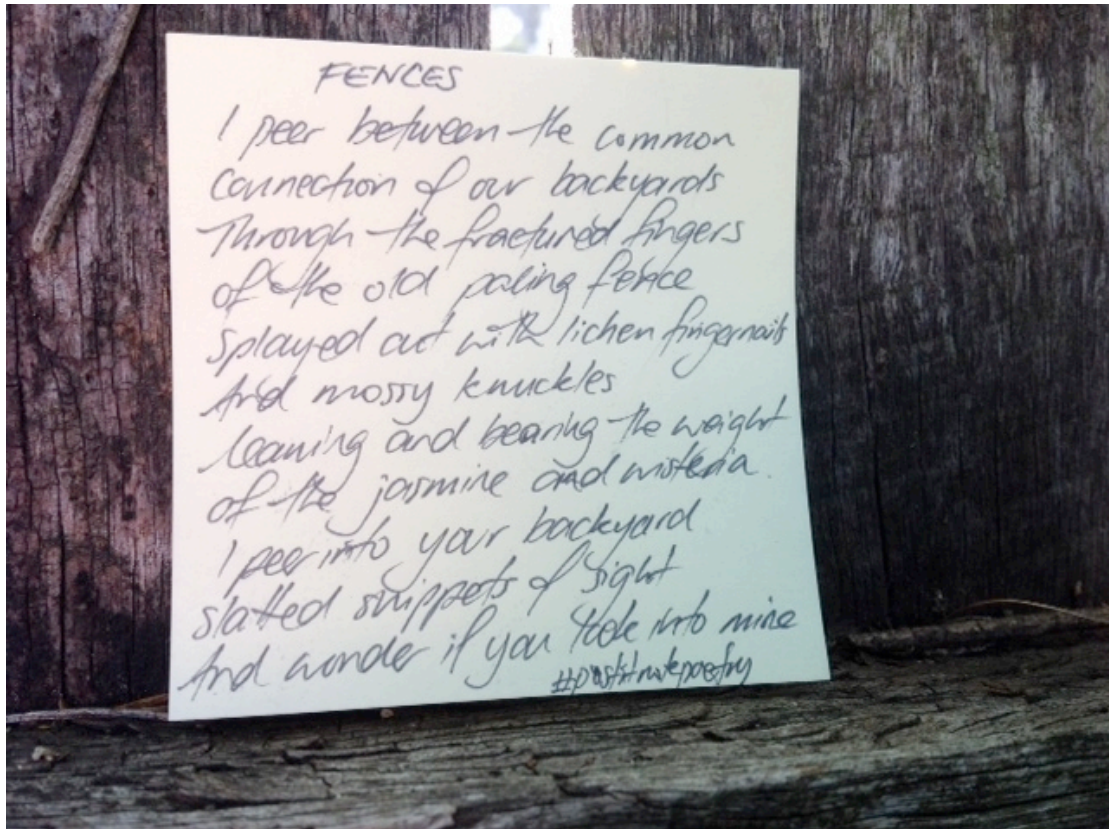 FENCES
I peer between the common
Connection of our backyards
Through the fractured fingers
of the old paling fence
Splayed out with lichen fingernails
And mossy knuckles
Leaning and bearing the weight
of the jasmine and wisteria.
I peer into your backyard
slatted snippets of sight
And wonder if you look into mine
#postitnotepoetry